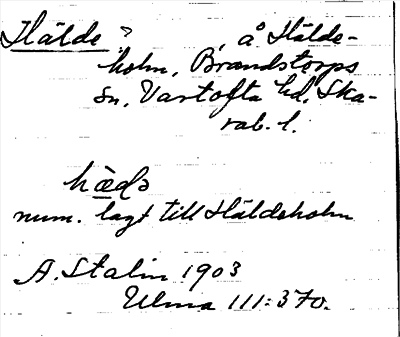 Hälde ?, å Hälde-
holm, Brandstorps
sn, Vartofta hd, Ska-
rab. l.
hæds
num. lagt till Häldeholm
A. Stalin 1903
Ulma 111:370.